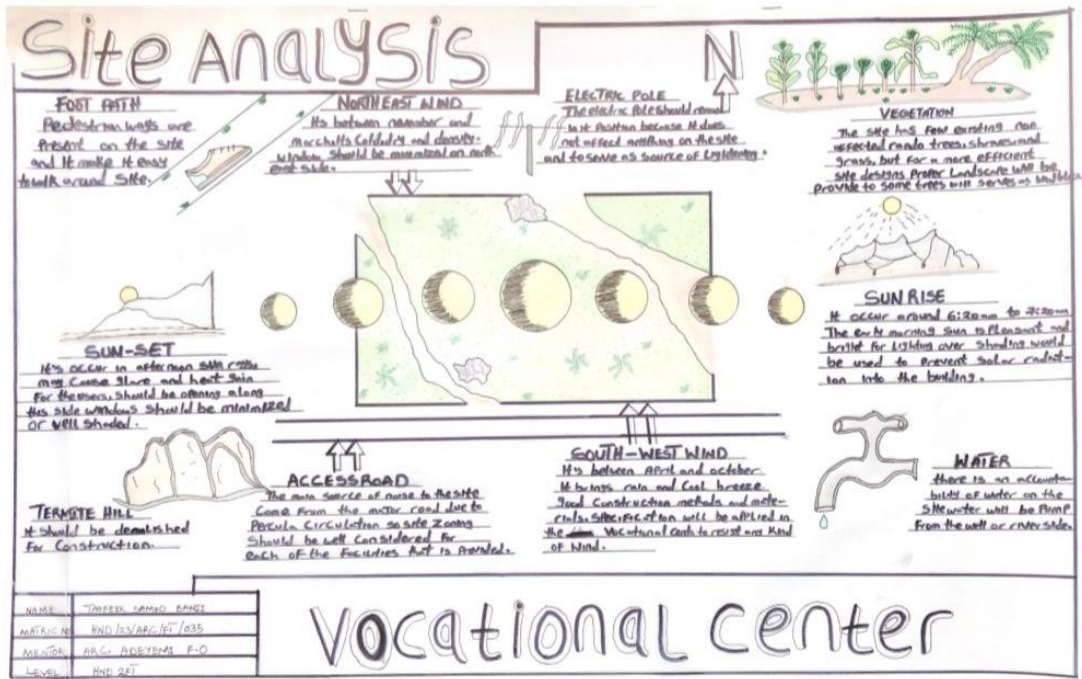 Site Analysis
N
FOOT PATH
Pedestrian ways are
Present on the site
and it make it easy
to walk around site.
NORTHEAST WIND
Its between november and
march its Cold dry and
window should be minimized on north
east side.
ELECTRIC POLE
The electric Pole should
in it Position because it does
not affect anything on the site
and to serve as source of Lightening.
VEGETATION
The site has few existing non
affected trees, and
grass, but for a more efficient
site designs Proper Landscape will be
Provide to some trees will serves as
SUN-SET
It's occur in afternoon sun
may Cause glare and heat gain
For the users, should be opening along
this side windows should be minimized
or well shaded.
SUN RISE
It occur around 6:20am to 7:20am
The early morning sun is Pleasant and
bright for Lighting over Shading would
be used to Prevent Solar radiat-
ion into the building.
TERMITE HILL
It should be demolished
For Construction.
ACCESSROAD
The main source of noise to the site
Come From the motor road due to
Circulation so site Zoning
Should be well Considered For
each of the Facilities that is Provided.
SOUTH-WEST WIND
It's between April and october
It brings rain and Cool breeze
good Construction methods and mate-
rials. Specification will be applied in
the Vocational to resist any Kind
of Wind.
WATER
there is an
bility of water on the
site water will be Pump
From the well or river side.
NAME
SAMAD BANJI
MATRIC NO
HND/23/ARC/FT/035
MENTOR
ARC. ADEYEMI F.O
LEVEL
HND 2FT
Vocational Center